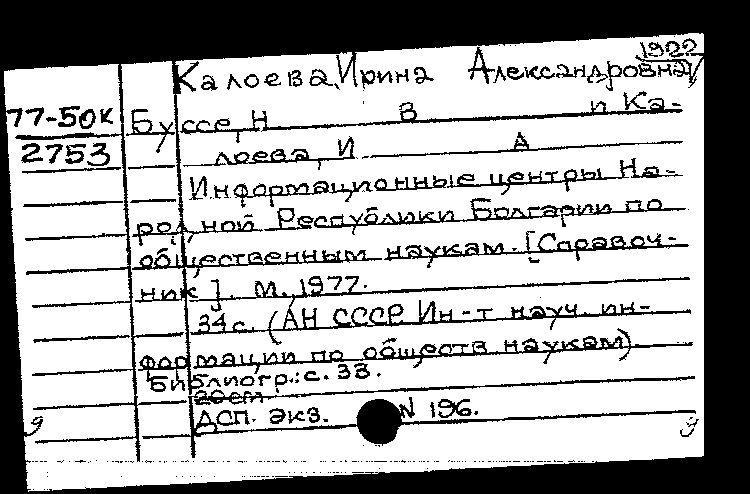 1922
Калоева, Ирина Александровна
77-50к Буссе, Н В и Ка-
2753 лоева, И А
Информационные центры На-
родной Республики Болгарии по
общественным наукам. [Справоч-
ник]. М., 1977.
34 с. (АН СССР. Ин-т науч. ин-
формации по обществ. наукам)
Библиогр.: с. 33.
20 см
ДСП. Экз. N 196.
g g